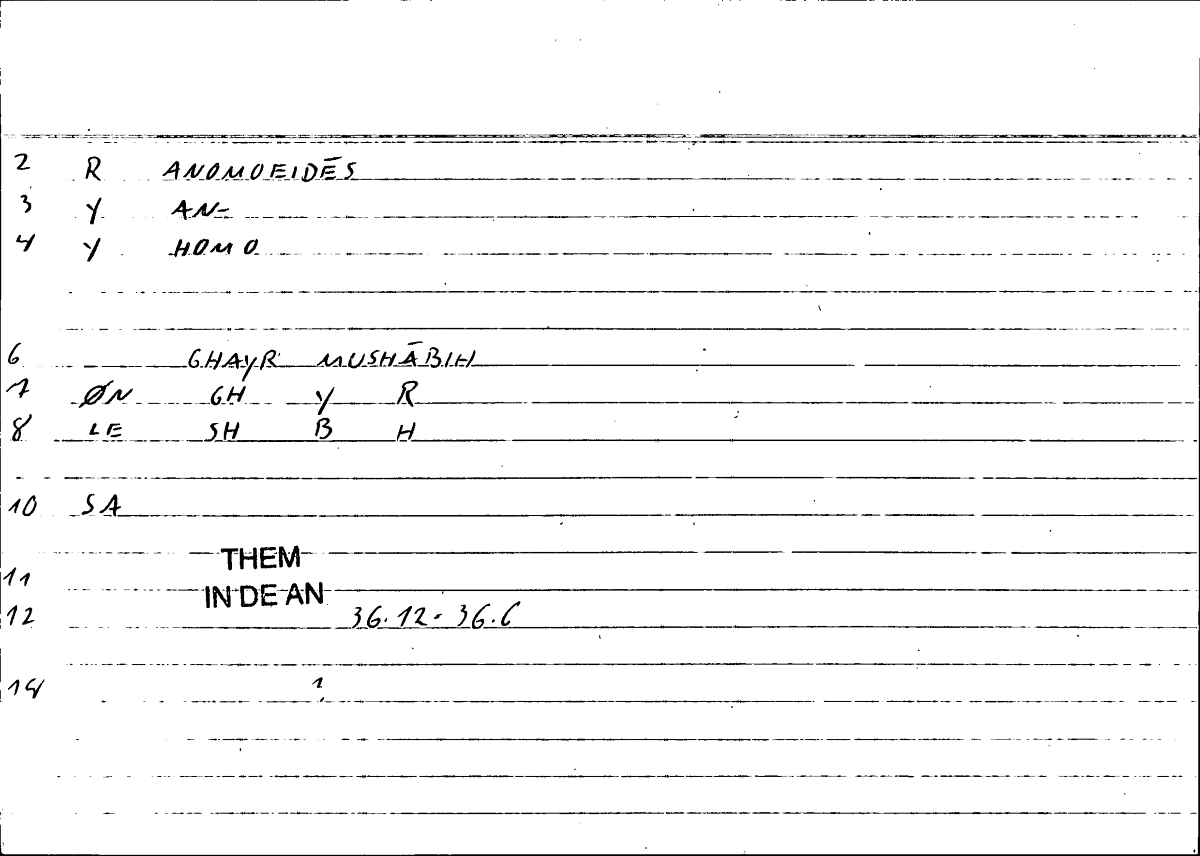 2 R ANOMOEIDĒS
3 Y AN-
4 Y HOMO
6 GHAYR MUSHĀBIH
7 ØN GH Y R
8 LE SH B H
10 SA
THEM
11
IN DE AN
12 36.12. 36.6
14 1